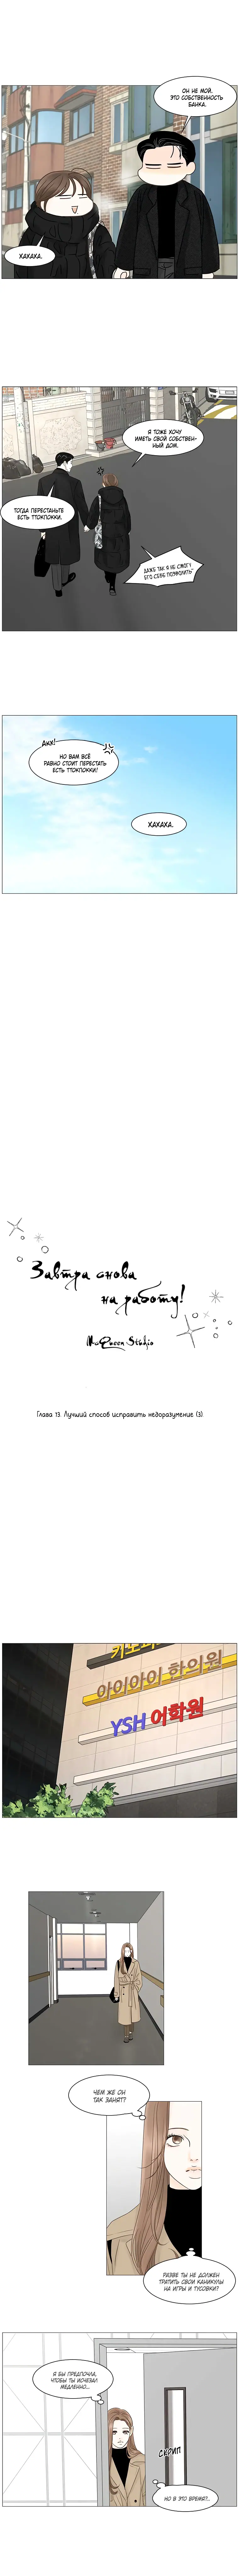 ОН НЕ МОЙ.
ЭТО СОБСТВЕННОСТЬ
БАНКА.
ХАХАХА.
Я ТОЖЕ ХОЧУ
ИМЕТЬ СВОЙ СОБСТВЕН-
НЫЙ ДОМ.
ТОГДА ПЕРЕСТАНЬТЕ
ЕСТЬ ТТОКПОККИ.
ДАЖЕ ТАК Я НЕ СМОГУ
ЕГО СЕБЕ ПОЗВОЛИТЬ~
ДИХ!
НО ВАМ ВСЁ
РАВНО СТОИТ ПЕРЕСТАТЬ
ЕСТЬ ТТОКПОККИ!
ХАХАХА.
Завтра снова
на работу!
McQueen Studio
Глава 13. Лучший способ исправить недоразумение (3).
아이아이 한의원
YSH 어학원
ЧЕМ ЖЕ ОН
ТАК ЗАНЯТ?
РАЗВЕ ТЫ НЕ ДОЛЖЕН
ТРАТИТЬ СВОИ КАНИКУЛЫ
НА ИГРЫ И ТУСОВКИ?
Я БЫ ПРЕДПОЧЛА,
ЧТОБЫ ТЫ ИСЧЕЗАЛ
МЕДЛЕННО...
СКРИП
НО В ЭТО ВРЕМЯ?..